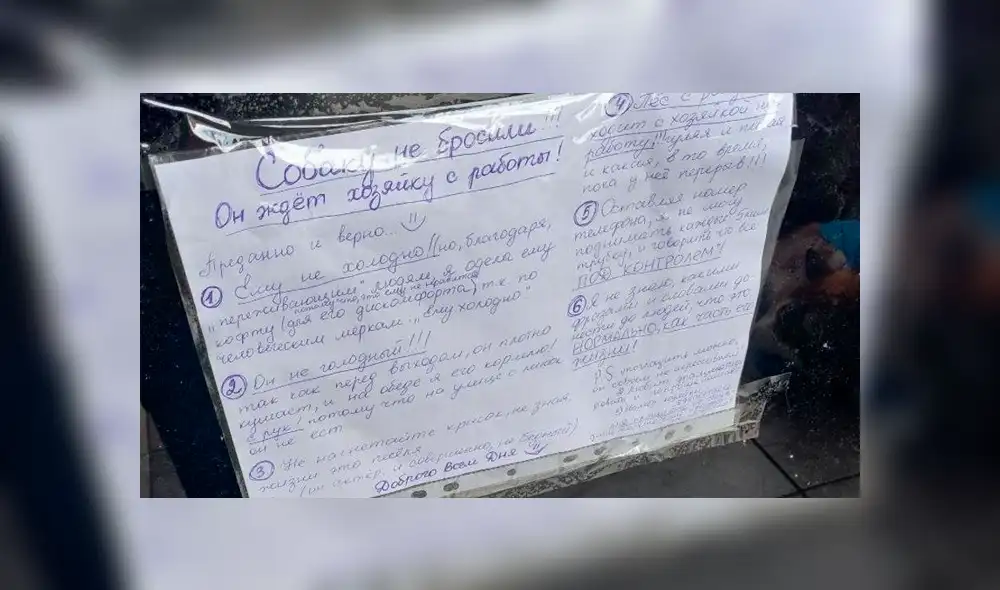 Собаку не бросили!!!
Он ждёт хозяйку с работы!
Преданно и верно...
① Ему не холодно!! но, благодаря,
„переживающим" людям, я одела ему
потому что, это ему не нравится
кофту (для его дискомфорта) т.к. по
человеческим меркам „ему холодно"
② Он не голодный!!!
так как перед выходом, он плотно
кушает, и на обеде я его кормлю!
с рук! потому что на улице с миски
он не ест
③ Не нагнетайте красок, не зная
жизни это пселя
(он актёр, и совершенно, не бедный)
Доброго Всем Дня
④ Пёс с
ходит с хозяйкой на
работу!! гуляя и писая
и какая, в то время,
пока у неё перерыв!!!
⑤ Оставляя номер
телефона, я не могу
поднимать каждые 5 мин
трубку, и говорить что всё
ПОД КОНТРОЛЕМ!!
⑥ Я не знаю, какими
фразами и словами до-
нести до людей, что это
НОРМАЛЬНО, как часть его
жизни!
P.S погладить можно,